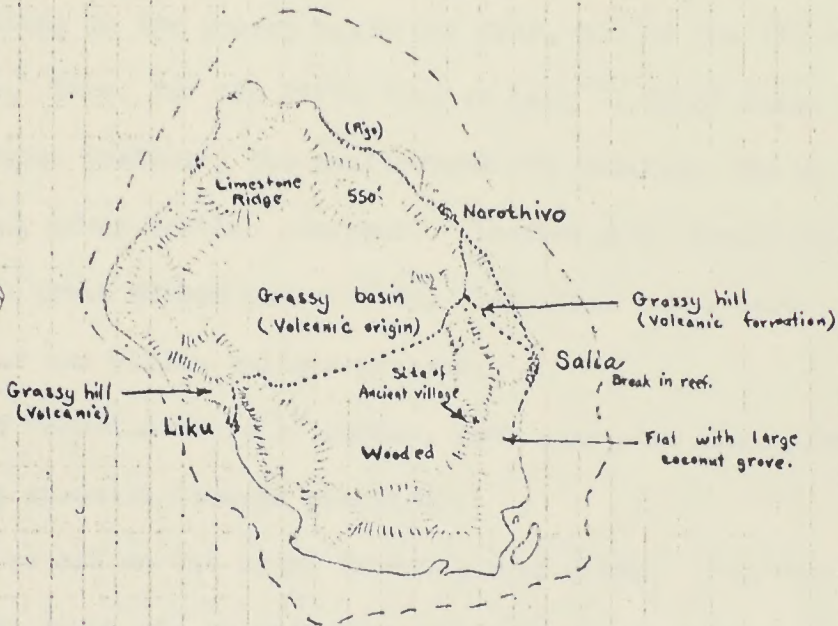 (Rigo)
550'
Limestone
Ridge
Narothivo
Grassy basin
(Volcanic origin)
Grassy hill
(Volcanic formation)
Salia
Break in reef.
Site of
Ancient village
Grassy hill
(Volcanic)
Liku
Wooded
Flat with large
coconut grove.